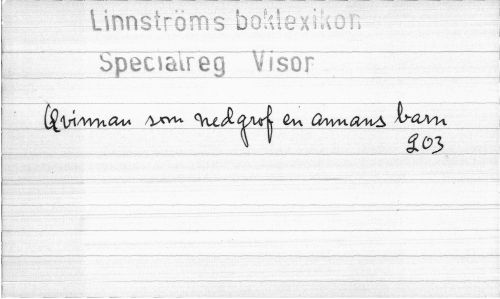 Linnströms boklexikon
Specialreg Visor
Qvinnan som nedgrof en annans barn
203